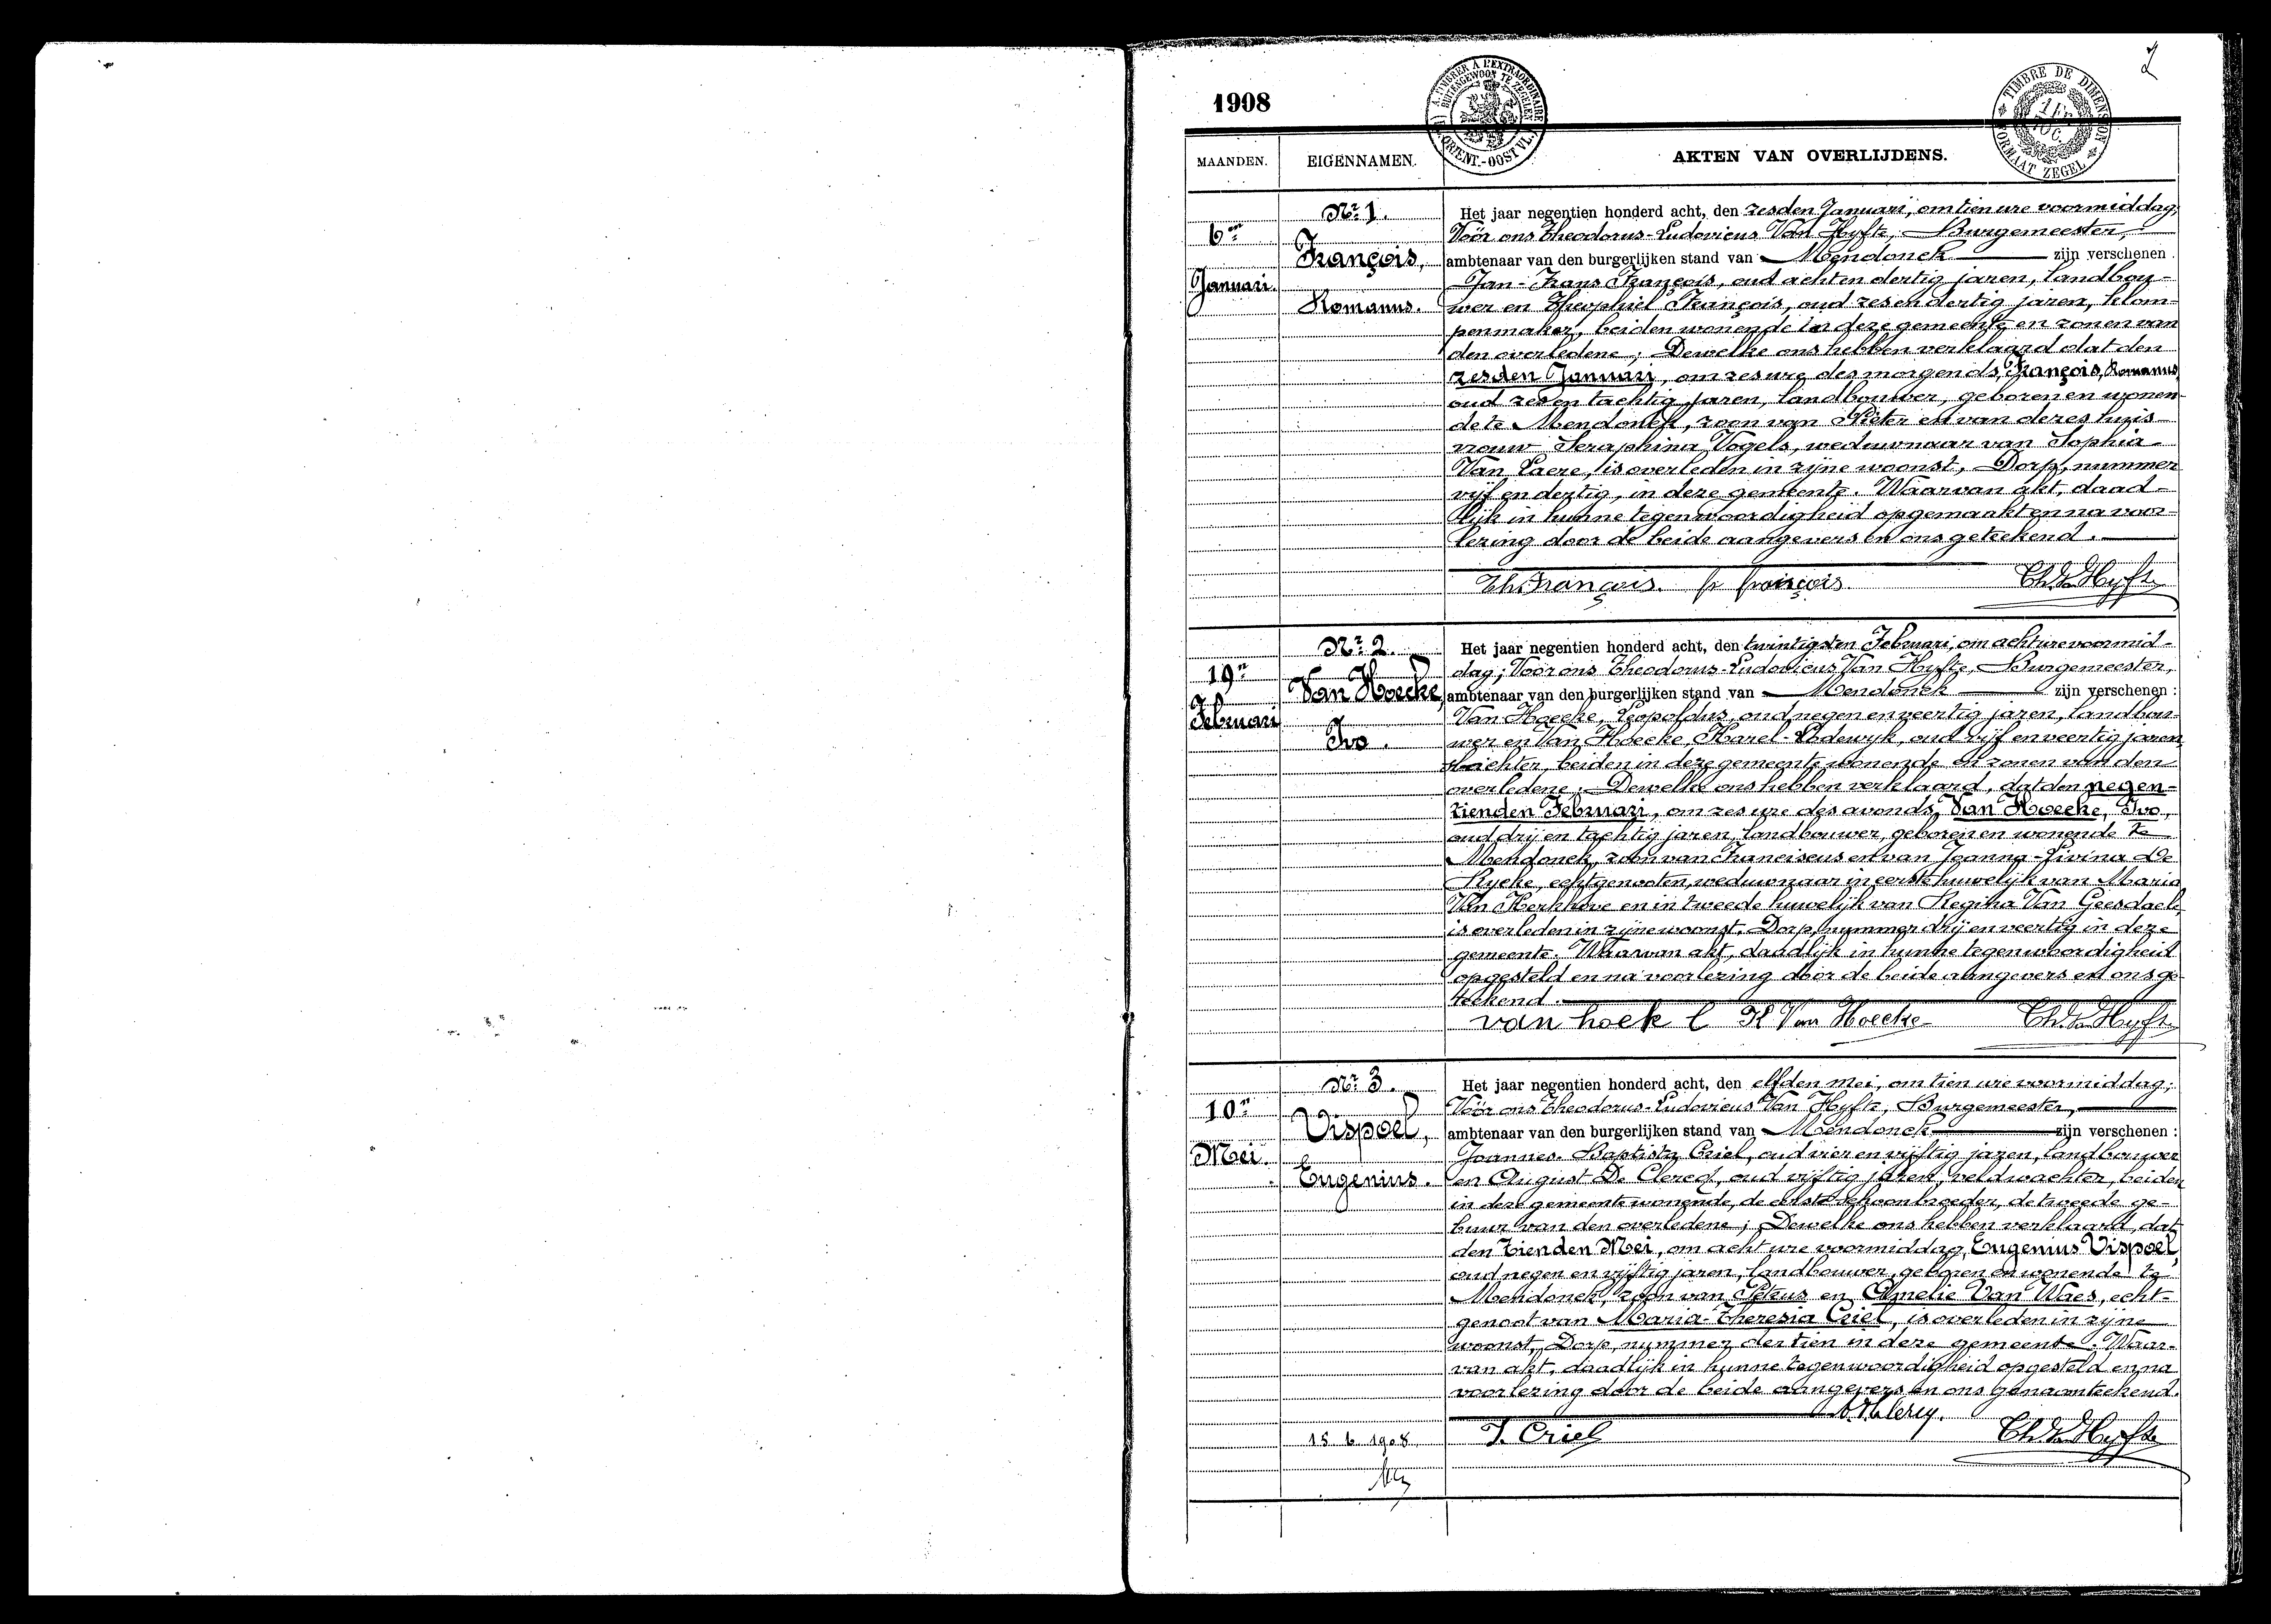 2
1908
A TIMBRER A L'EXTRAORDINAIRE
BUITENGEWOON TE ZEGELEN
(FL. ORIENT.-OOST VL.)
TIMBRE DE DIMENSION
1 Fr.
10 C.
FORMAAT ZEGEL
MAANDEN.
EIGENNAMEN.
AKTEN VAN OVERLIJDENS.
6en
Januari.
Nr 1.
François,
Romanus.
Het jaar negentien honderd acht, den zesden Januari, om tien ure voormiddag;
Vóór ons Theodorus-Ludovicus Van Hyfte, Burgemeester,
ambtenaar van den burgerlijken stand van Mendonck zijn verschenen
Jan-Frans François, oud acht en dertig jaren, landbou-
wer en Theophiel François, oud zes en dertig jaren, klom-
penmaker, beiden wonende in deze gemeente en zonen van
den overledene; Dewelke ons hebben verklaard dat den
zesden Januari, om zes ure des morgends, François, Romanus,
oud zes en tachtig jaren, landbouwer, geboren en wonen-
de te Mendonck, zoon van Pieter en van dezes huis-
vrouw Seraphina Vogels, weduwnaar van Sophia
Van Laere, is overleden in zijne woonst, Dorp, nummer
vijf en dertig, in deze gemeente. Waarvan akt, daad-
lijk in hunne tegenwoordigheid opgemaakt en na voor-
lezing door de beide aangevers en ons geteekend.
Th. François. fr françois. Th. Van Hyfte
19n
Februari
Nr 2.
Van Hoecke,
Ivo.
Het jaar negentien honderd acht, den twintigsten Februari, om acht ure voormid-
dag; Vóór ons Theodorus-Ludovicus Van Hyfte, Burgemeester,
ambtenaar van den burgerlijken stand van Mendonck zijn verschenen :
Van Hoecke, Leopoldus, oud negen en veertig jaren, landbou-
wer en Van Hoecke, Karel-Lodewyk, oud vijf en veertig jaren,
beiden in deze gemeente wonende en zonen van den
overledene; Dewelke ons hebben verklaard, dat den negen-
tienden Februari, om zes ure des avonds, Van Hoecke, Ivo,
oud drij en tachtig jaren, landbouwer, geboren en wonende te
Mendonck, zoon van Franciscus en van Joanna-Livina De
Rycke, echtgenooten, weduwnaar in eerste huwelijk van Maria
Van Kerkhove en in tweede huwelijk van Regina Van Geesdaele,
is overleden in zijne woonst, Dorp, nummer drij en veertig in deze
gemeente. Waarvan akt, daadlijk in hunne tegenwoordigheid
opgesteld en na voorlezing door de beide aangevers en ons ge-
teekend.
van hoek l K Van Hoecke Th. Van Hyfte
10n
Mei.
Nr 3.
Vispoel,
Eugenius.
Het jaar negentien honderd acht, den elfden Mei, om tien ure voormiddag;
Vóór ons Theodorus-Ludovicus Van Hyfte, Burgemeester,
ambtenaar van den burgerlijken stand van Mendonck zijn verschenen :
Joannes-Baptista Criel, oud vier en vijftig jaren, landbouwer
en August De Clercq, oud vijftig jaren, veldwachter, beiden
in deze gemeente wonende, de eerste schoonbroeder, de tweede ge-
buur van den overledene; Dewelke ons hebben verklaard, dat
den tienden Mei, om acht ure voormiddag, Eugenius Vispoel,
oud negen en vijftig jaren, landbouwer, geboren en wonende te
Mendonck, zoon van Petrus en Amelie Van Waes, echt-
genoot van Maria-Theresia Criel, is overleden in zijne
woonst, Dorp, nummer dertien in deze gemeente. Waar-
van akt, daadlijk in hunne tegenwoordigheid opgesteld en na
voorlezing door de beide aangevers en ons genaamteekend.
A. De Clercq.
15 6 1908 J. Criel Th. Van Hyfte